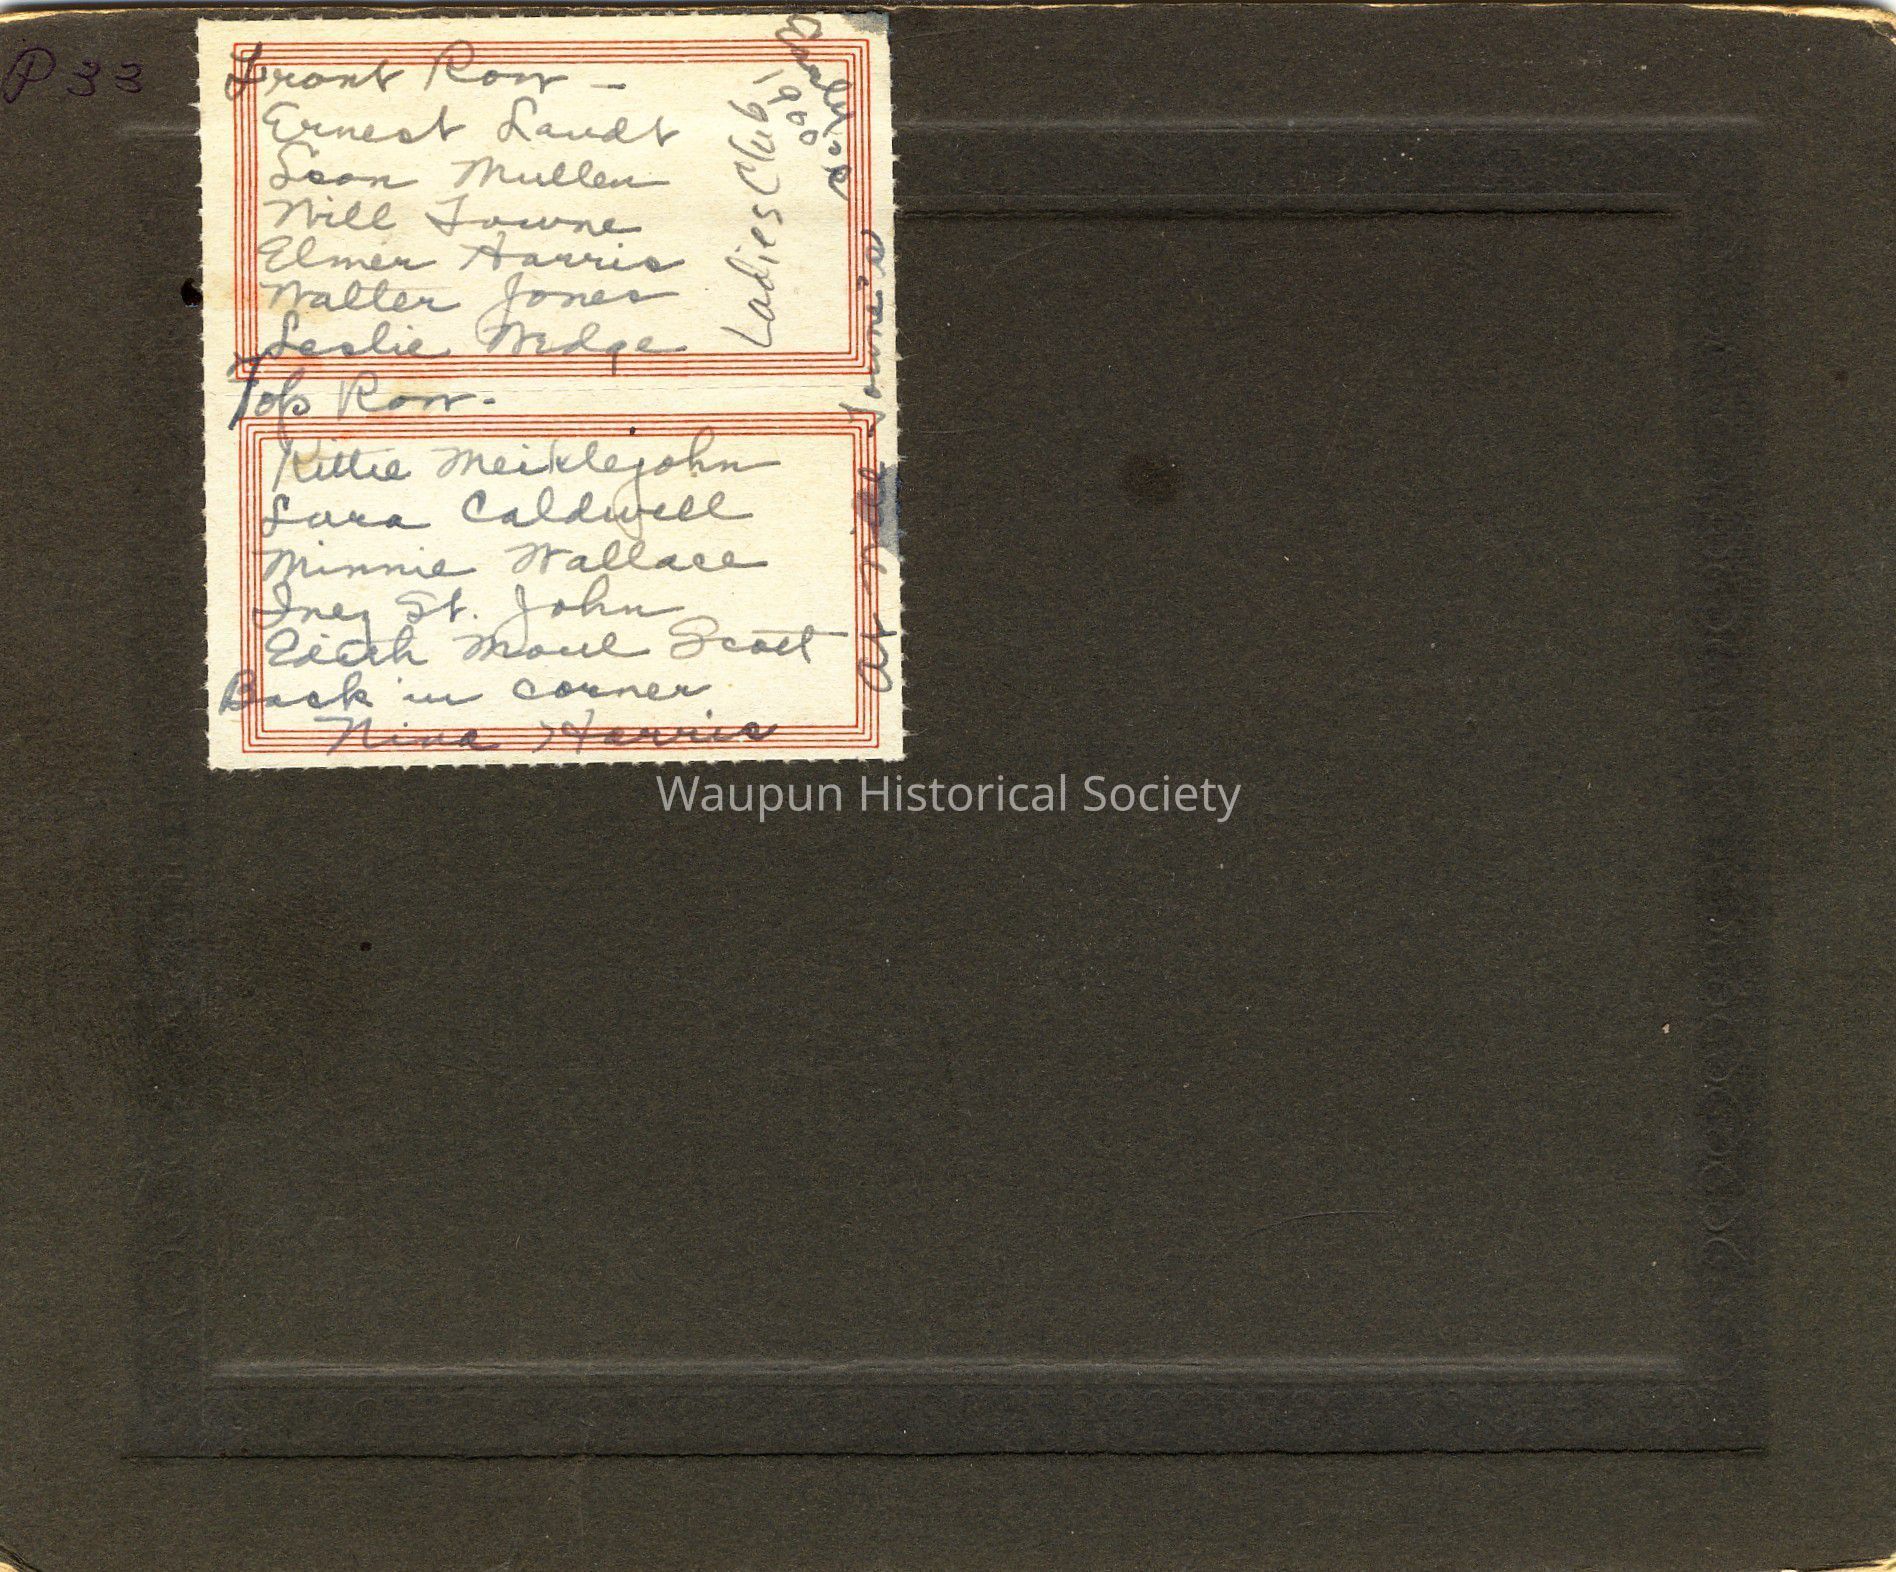 P 33
Front Row -
Ernest Landt
Leon Mullen
Will Towne
Elmer Harris
Walter Jones
Leslie Wedge
Top Row -
Kittie Meiklejohn
Lura Caldwell
Minnie Wallace
Inez St. John
Edith Moul Scott
Back in corner
Nina Harris
Ladies Club
Early 1900
At Will Towne's
Waupun Historical Society